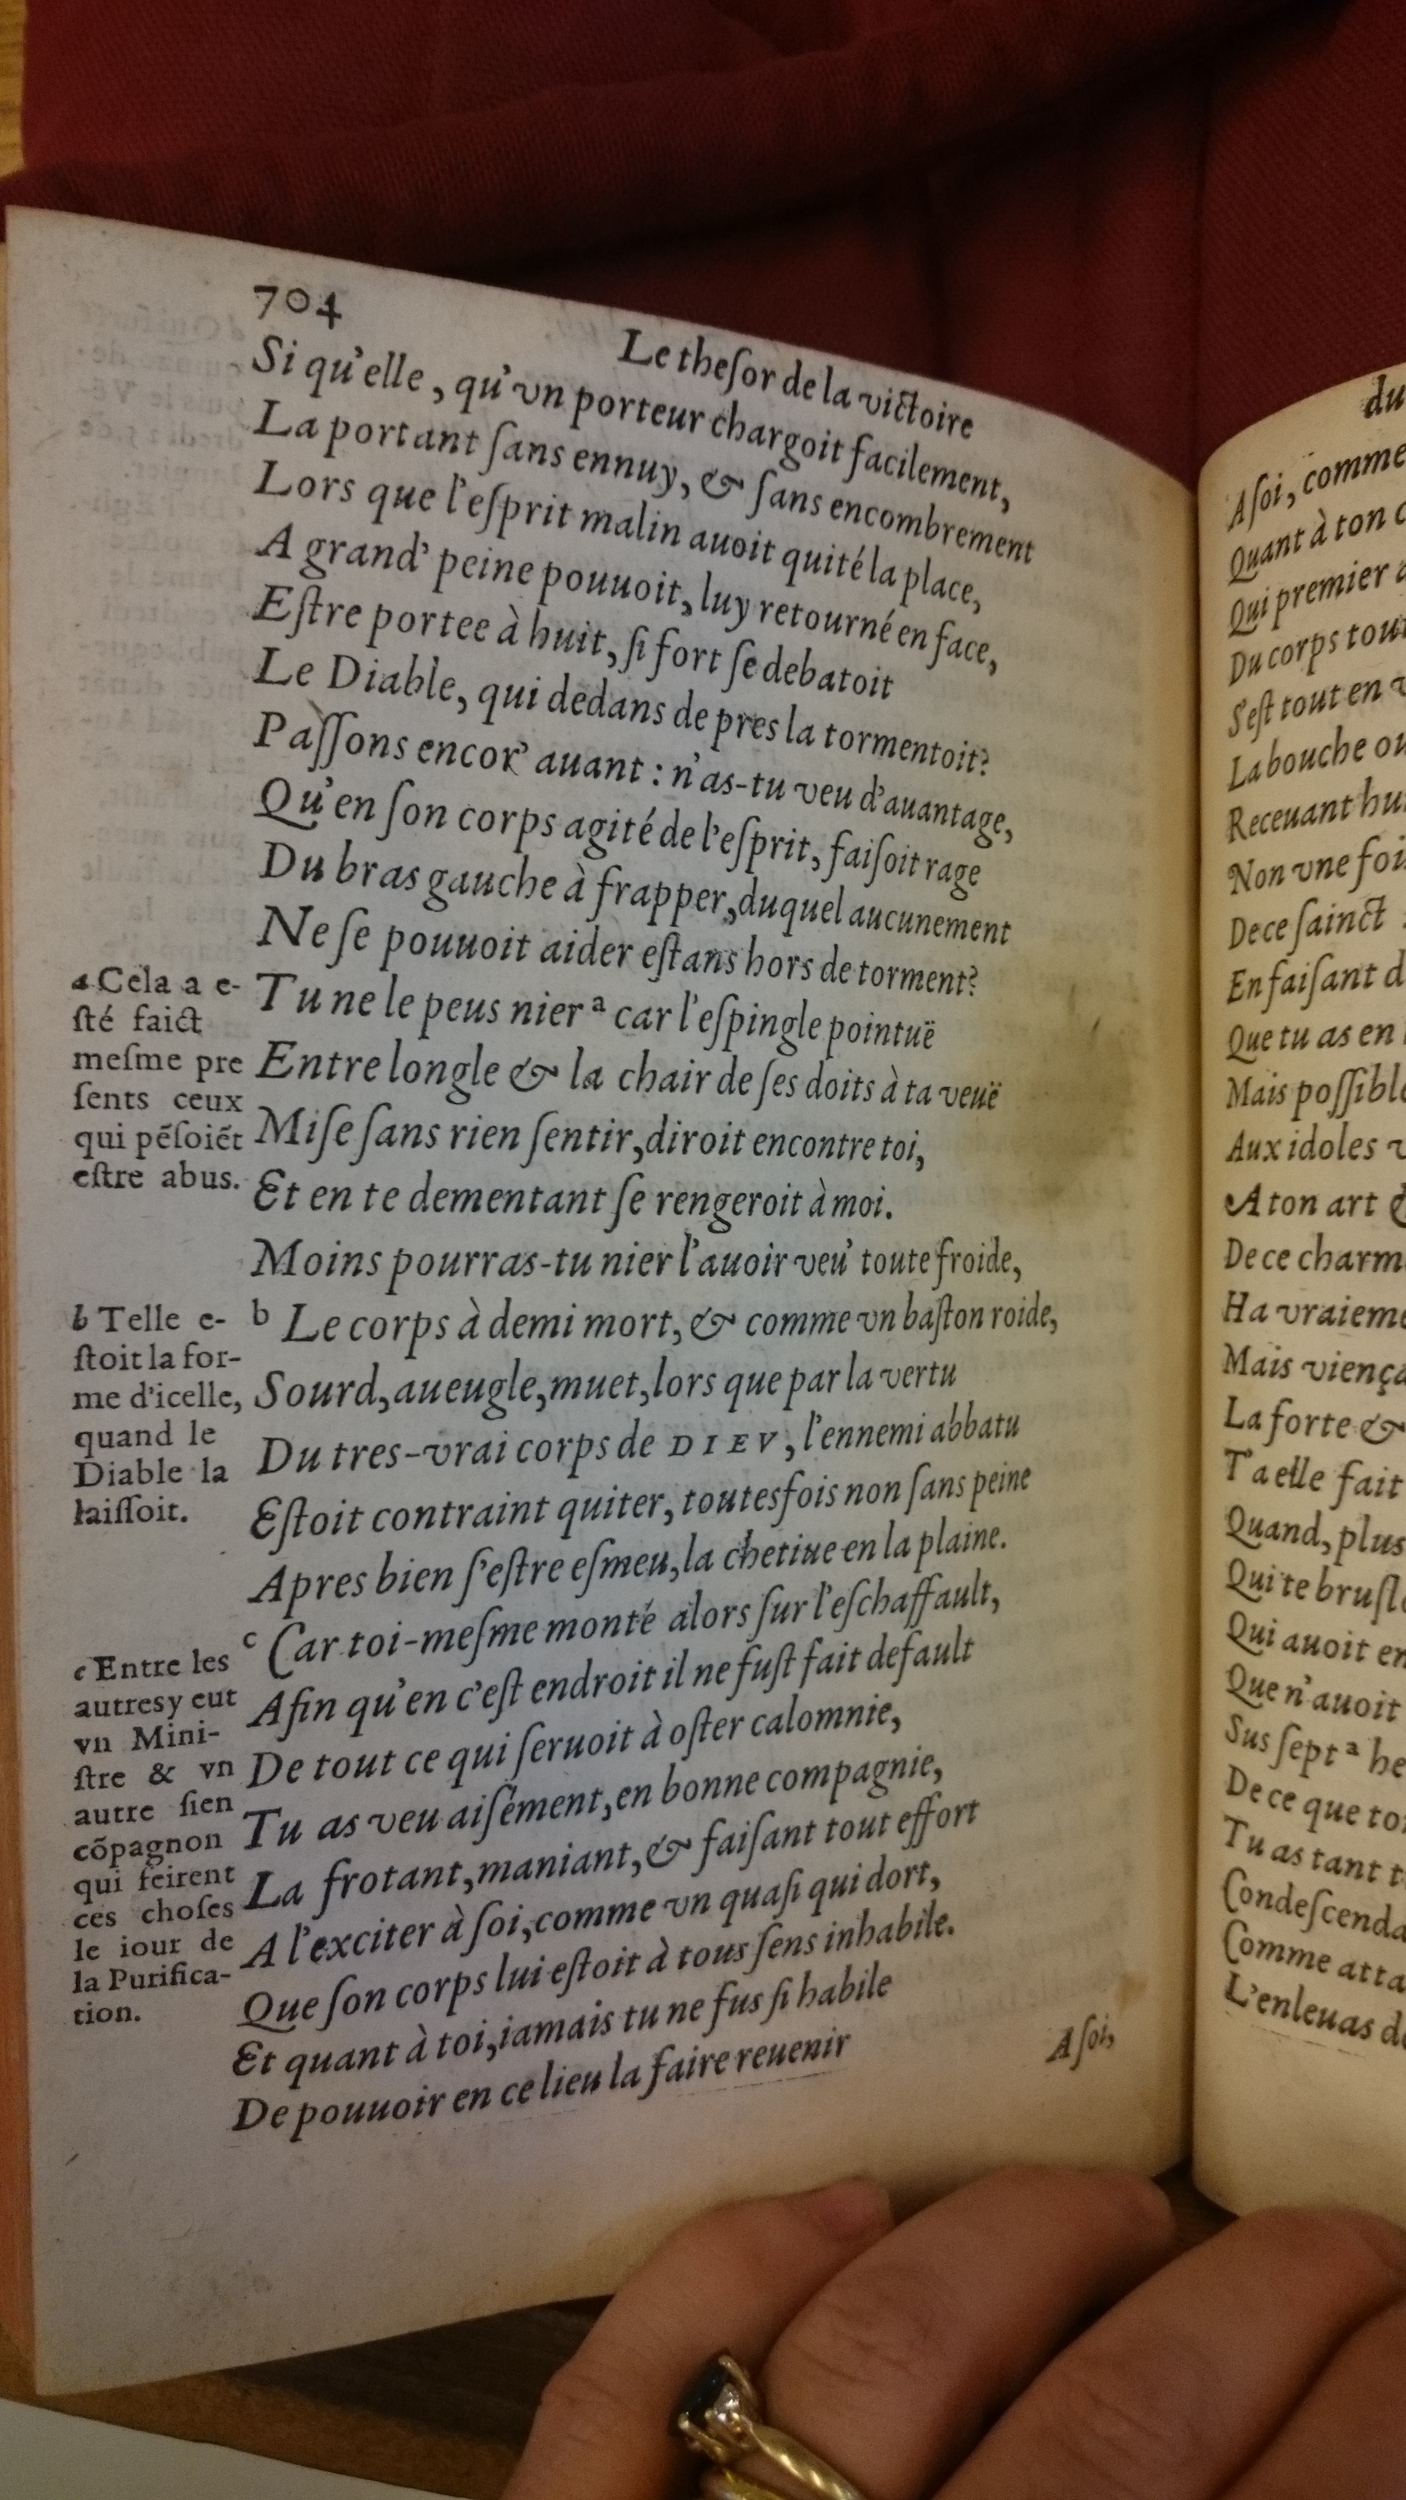 704
Le theſor de la victoire
Si qu'elle, qu'vn porteur chargoit facilement,
La portant ſans ennuy, & ſans encombrement
Lors que l'eſprit malin auoit quité la place,
A grand' peine pouuoit, luy retourné en face,
Eſtre portee à huit, ſi fort ſe debatoit
Le Diable, qui dedans de pres la tormentoit?
Paſſons encor' auant : n'as-tu veu d'auantage,
Qu'en ſon corps agité de l'eſprit, faiſoit rage
Du bras gauche à frapper, duquel aucunement
Ne ſe pouuoit aider eſtans hors de torment?
Tu ne le peus nier ª car l'eſpingle pointuë
Entre longle & la chair de ſes doits à ta veuë
Miſe ſans rien ſentir, diroit encontre toi,
Et en te dementant ſe rengeroit à moi.
Moins pourras-tu nier l'auoir veu' toute froide,
b Le corps à demi mort, & comme vn baſton roide,
Sourd, aueugle, muet, lors que par la vertu
Du tres-vrai corps de DIEV, l'ennemi abbatu
Eſtoit contraint quiter, toutesfois non ſans peine
Apres bien ſ'eſtre eſmeu, la chetiue en la plaine.
c Car toi-meſme monté alors ſur l'eſchaffault,
Afin qu'en c'eſt endroit il ne fuſt fait default
De tout ce qui ſeruoit à oſter calomnie,
Tu as veu aiſément, en bonne compagnie,
La frotant, maniant, & faiſant tout effort
A l'exciter à ſoi, comme vn quaſi qui dort,
Que ſon corps lui eſtoit à tous ſens inhabile.
Et quant à toi, iamais tu ne fus ſi habile
De pouuoir en ce lieu la faire reuenir
A ſoi,
a Cela a e-
ſté faict
meſme pre
ſents ceux
qui pẽſoiẽt
eſtre abus.
b Telle e-
ſtoit la for-
me d'icelle,
quand le
Diable la
laiſſoit.
c Entre les
autres y eut
vn Mini-
ſtre & vn
autre ſien
cõpagnon
qui feirent
ces choſes
le iour de
la Purifica-
tion.
du
A ſoi, comme
Quant à ton
Qui premier
Du corps tout
S'eſt tout en
La bouche
Receuant
Non vne fois
De ce ſainct
En faiſant
Que tu as en
Mais poſſible
Aux idoles
A ton art
De ce charm
Ha vraieme
Mais viença
La forte &
T'a elle fait
Quand, plus
Qui te bruſl
Qui auoit en
Que n'auoit
Sus ſept ª he
De ce que
Tu as tant
Condeſcenda
Comme atta
L'enleuas